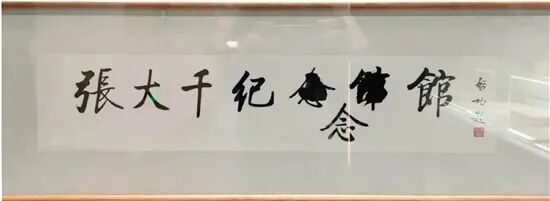 張大千纪念館
啓功題